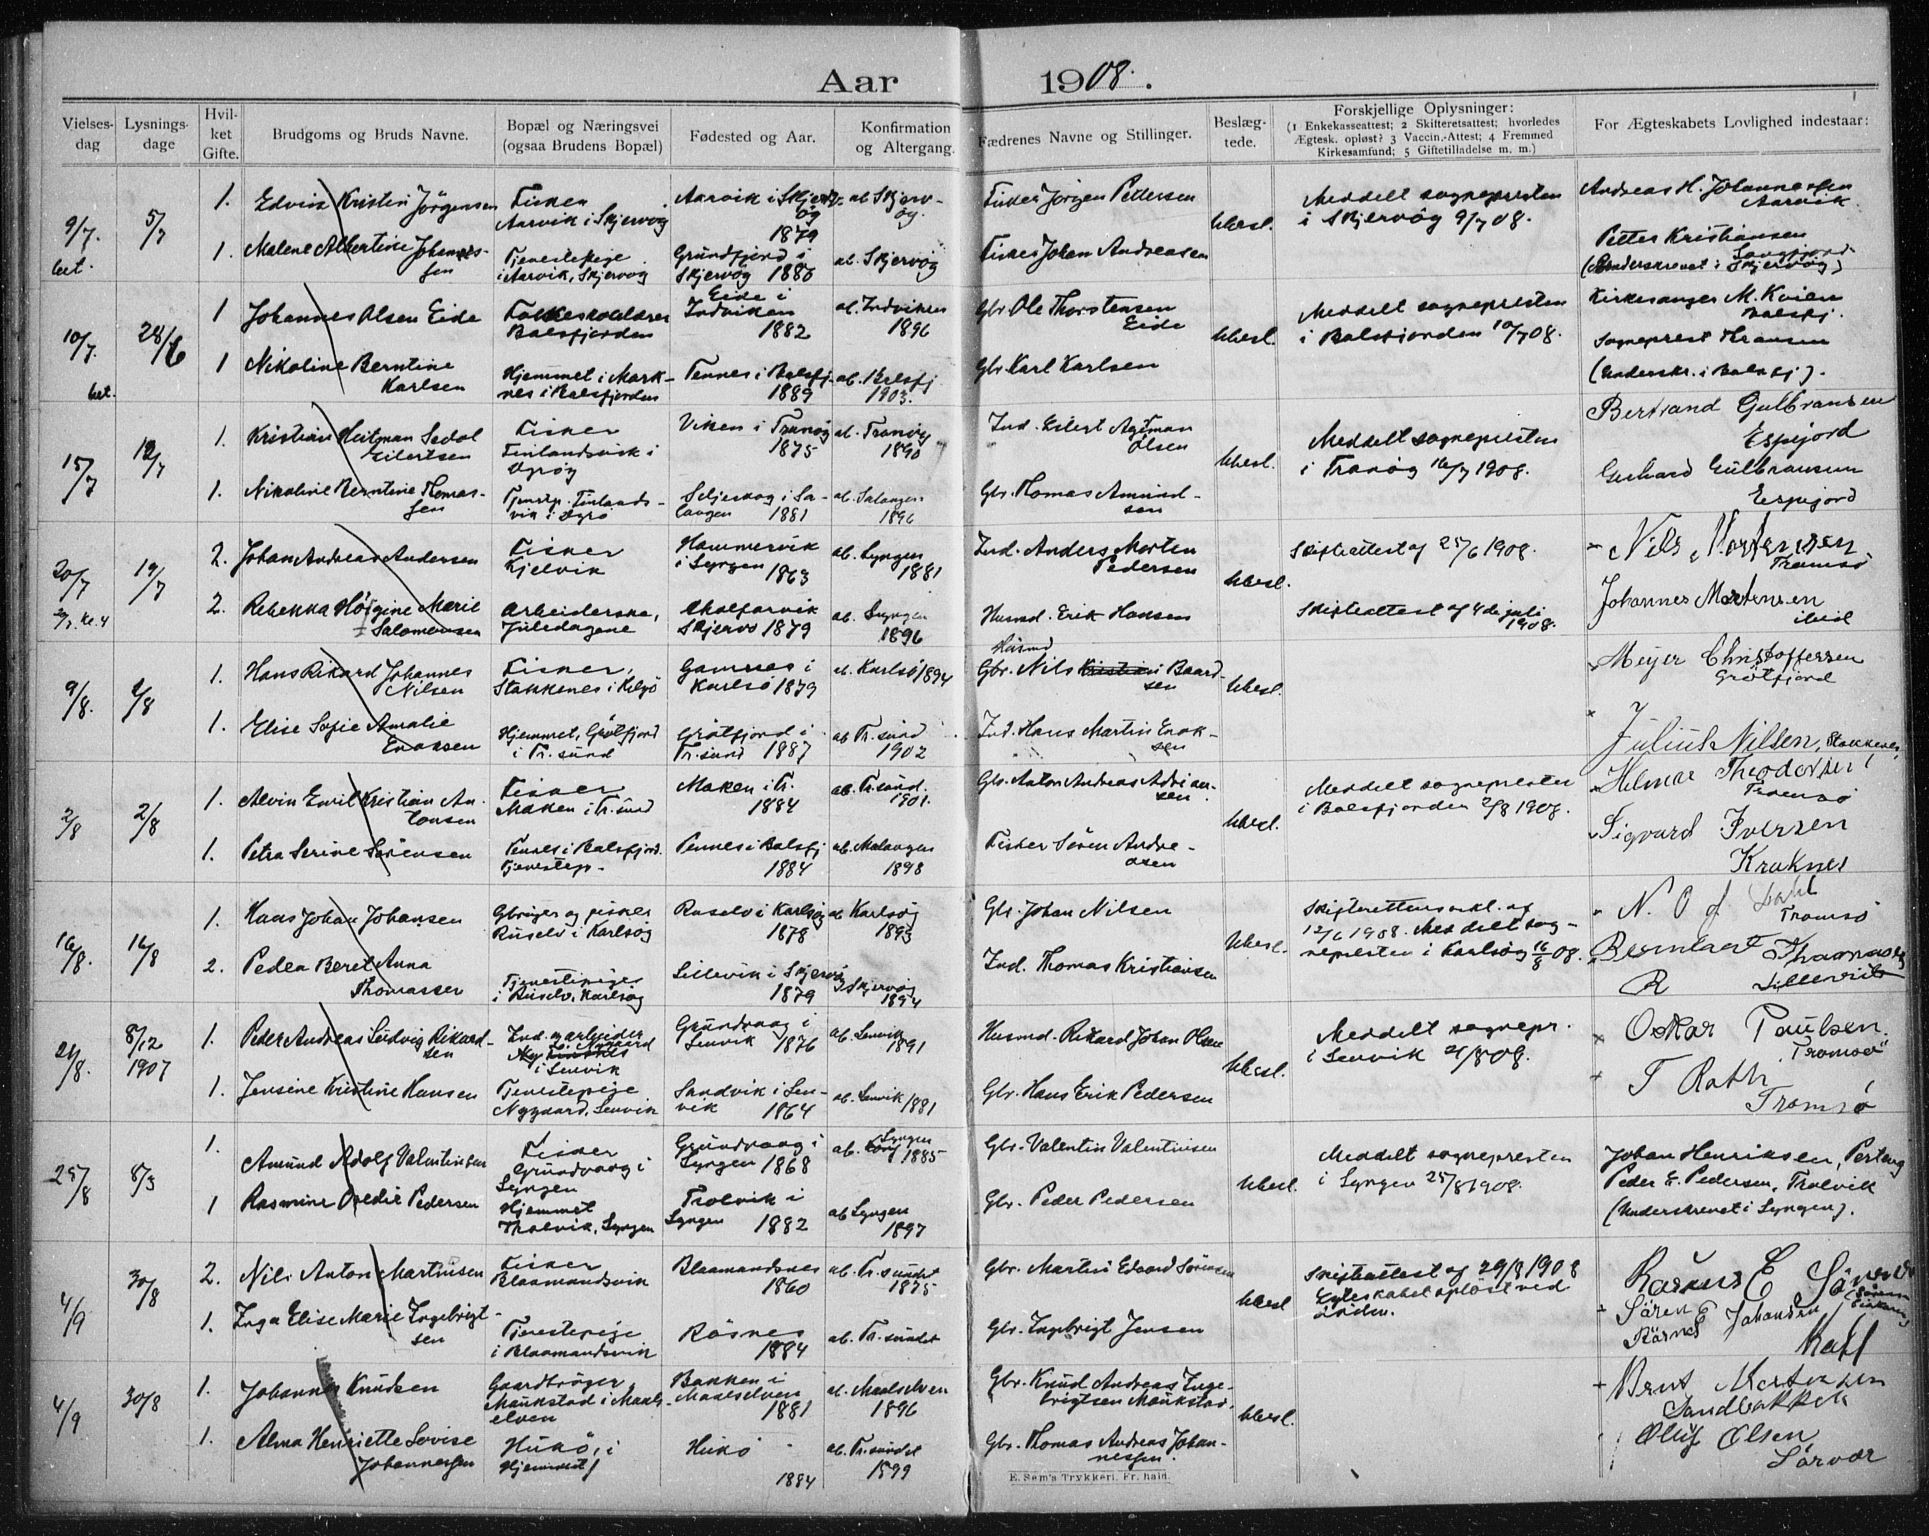 Aar 1908.
Vielses-dag
Lysnings-dage
Hvil-ket Gifte.
Brudgoms og Bruds Navne.
Bopæl og Næringsvei (ogsaa Brudens Bopæl)
Fødested og Aar.
Konfirmation og Altergang.
Fædrenes Navne og Stillinger.
Beslæg-tede.
Forskjellige Oplysninger:
(1 Enkekasseattest; 2 Skifteretsattest; hvorledes
Ægtesk. opløst? 3 Vaccin.-Attest; 4 Fremmed
Kirkesamfund; 5 Giftetilladelse m. m.)
For Ægteskabets Lovlighed indestaar:
9/7. 5/7
1. Edvin Kristin Jörgensen
Fisker
Aarvik i Skjervög
Aarvik i Skjervög
1879
ab Skjervög.
Fisker Jörgen Pettersen
Ubesl.
Meddelt sognepresten
i Skjervög 9/7 08.
Andreas H. Johannessen
Aarvik
1. Malene Albertine Johannessen
Tjenestepige
i Aarvik, Skjervög
Grundfjord i
Skjervög 1886
ab. Skjervög
Fisker Johan Andreasen
Petter Kristiansen
(Underskrevet i Skjervög)
10/7. 28/6
1 Johannes Olsen Eide
Folkeskolelærer
Balsfjorden
Eide i
Indviken
1882
ab. Indviken
1896
Gbr Ole Thorstensen
Eide
Ubesl.
Meddelt sognepresten
i Balsfjorden 10/7 08.
Kirkesanger M. Kvien
Balsfj.
1 Nikoline Berntine
Karlsen
Hjemmet i Mark-
nes i Balsfjorden
Tennes i Balsfj.
1889
ab. Balsfj
1903.
Gbr Karl Karlsen
Sogneprest Hansen
(Underskr. i Balsfj).
15/7 12/7
1. Kristian Heitman Sedol
Eilertsen
Fisker
Finlandsvik i
Dyröy
Viken i Tranöy
1875
ab. Tranöy
1890
Ind. Eilert Agtman
Olsen
Ubesl.
Meddelt sognepresten
i Tranöy 16/7 1908.
Bertrand Gulbransen
Espejord
1. Nikoline Berntine Thomas-
sen
Tjenstp. Finlands-
vik i Dyrö
Seljeskog i Sa-
langen 1881
ab. Salangen
1896
Gbr. Thomas Amund-
sen
Gerhard Gulbransen
Espejord
20/7 19/7
2. Johan Andreas Andersen
Fisker
Kjelvik
Hammervik
i Lyngen
1863
ab. Lyngen
1881
Ind. Anders Morten
Pedersen
Ubesl.
Skifteattest af 25/6 1908.
Nils Mortensen
Tromsö
2. Rebekka Högine Marie
Salomonsen
Arbeiderske,
Juledagene
Skjervö 1879
ab. Lyngen
1896
Husmd. Erik Hansen
Skifteattest af 4de juli
1908.
Johannes Mortensen
ibid
9/8. 2/8
1. Hans Rikard Johannes
Nilsen
Fisker,
Stakkenes i Helgö
Gamnes i
Karlsö 1879
ab. Karlsö 1894
Husmd
Gbr. Nils Kristian i Baard-
sen
Ubesl.
Meyer Christoffersen
Grötfjord
1. Elise Sofie Amalie
Enoksen
Hjemmet, Grötfjord
i Tr. sund
Grötfjord i
Tr. sund 1887
ab Tr. sund
1902
Ind. Hans Martin Enok-
sen
Julius Nilsen, Stakkenes
2/8 2/8
1. Alvin Emil Kristian An-
tonsen
Fisker
Maken i Tr. sund
Maken i Tr.
1884
ab Tr. sund.
1901.
Gbr. Anton Andreas Adrian-
sen
Ubesl.
Meddelt sognepresten
i Balsfjorden 2/8 1908.
Helmar Theodorsen
Tromsö
1. Petra Serine Sörensen
Tennes i Balsfjord.
Tjenestep.
Tennes i Balsfj
1884
ab. Malangen
1898
Fisker Sören Andre-
asen
Sigvard Iversen
Kraknes
16/8. 16/8
1. Hans Johan Johansen
Gbruger og fisker
Ruselv i Karlsög
Ruselv i Karlsög
1878
ab Karlsög
1893
Gbr. Johan Nilsen
Ubesl.
12/6 1908. Meddelt sog-
nepresten i Karlsög 16/8 08.
N. O. J. Dahl
Tromsö
2. Pedea Beret Anna
Thomassen
Tjenestepige
i Ruselv, Karlsög
Lillevik i Skjervö
1879
Skjervög
1894
Ind. Thomas Kristiansen
Bernhart Thomassen
R Lillevik
21/8. 8/12 1907
1. Peder Andreas Ludvig Rikard-
sen
Ind. og arbeider
Nygaard
i Lenvik
Grundvaag i
Lenvik 1876
ab. Lenvik
1891
Husmd. Rikard Johan Olsen
Ubesl.
Meddelt sognepr.
i Lenvik 21/8 08.
Oskar Paulsen.
Tromsö
1. Jensine Kristine Hansen
Tjenestepige
Nygaard, Lenvik
Sandvik i Len-
vik 1864
ab. Lenvik 1881
Gbr. Hans Erik Pedersen
T Rath
Tromsö
25/8 8/3
1. Amund Adolf Valentinsen
Fisker
Grundvaag i
Lyngen
Grundvaag i
Lyngen 1868
ab. Lyngen
1885
Gbr. Valentin Valentinsen
Ubesl.
Meddelt sognepresten
i Lyngen 25/8 1908.
Johan Henriksen,
Peder E. Pedersen, Trolvik
(Underskrevet i Lyngen).
1 Rasmine Ovedie Pedersen
Hjemmet
Trolvik, Lyngen
Trolvik i
Lyngen 1882
ab Lyngen
1897
Gbr. Peder Pedersen
4/9 30/8
2. Nils Anton Martinsen
Fisker
Blaamandsvik
Blaamandsnes
1860
ab. Tr. sundet
1875
Gbr. Martin Edvard Sörensen
Ubesl
Skifteattest af 29/8 1908
Egteskabet oplöst ved
döden.
Rasmus E Sörensen
1. Inga Elise Marie Ingebrigt-
sen
Tjenestepige
i Blaamandsvik
Rösnes
1884
ab. Tr. sundet
Gbr. Ingebrigt Jensen
Sören E Johansen
4/9 30/8
1. Johannes Knudsen
Gaardbruger
Maukstad i Maals-
elven
Bakken i
Maalselven
1881
ab. Maalselven
1896
Gbr. Knud Andreas Inge-
brigtsen Maukstad.
Ubesl.
Brut Mortensen
Sandbakken
1. Alma Henriette Lovise
Johannessen
Hjemmet
1884
ab. Tr. sundet
1899
Gbr. Thomas Andreas Johan-
nessen.
Oluf Olsen
Sörvær
E. Sem's Trykkeri, Fr. hald.